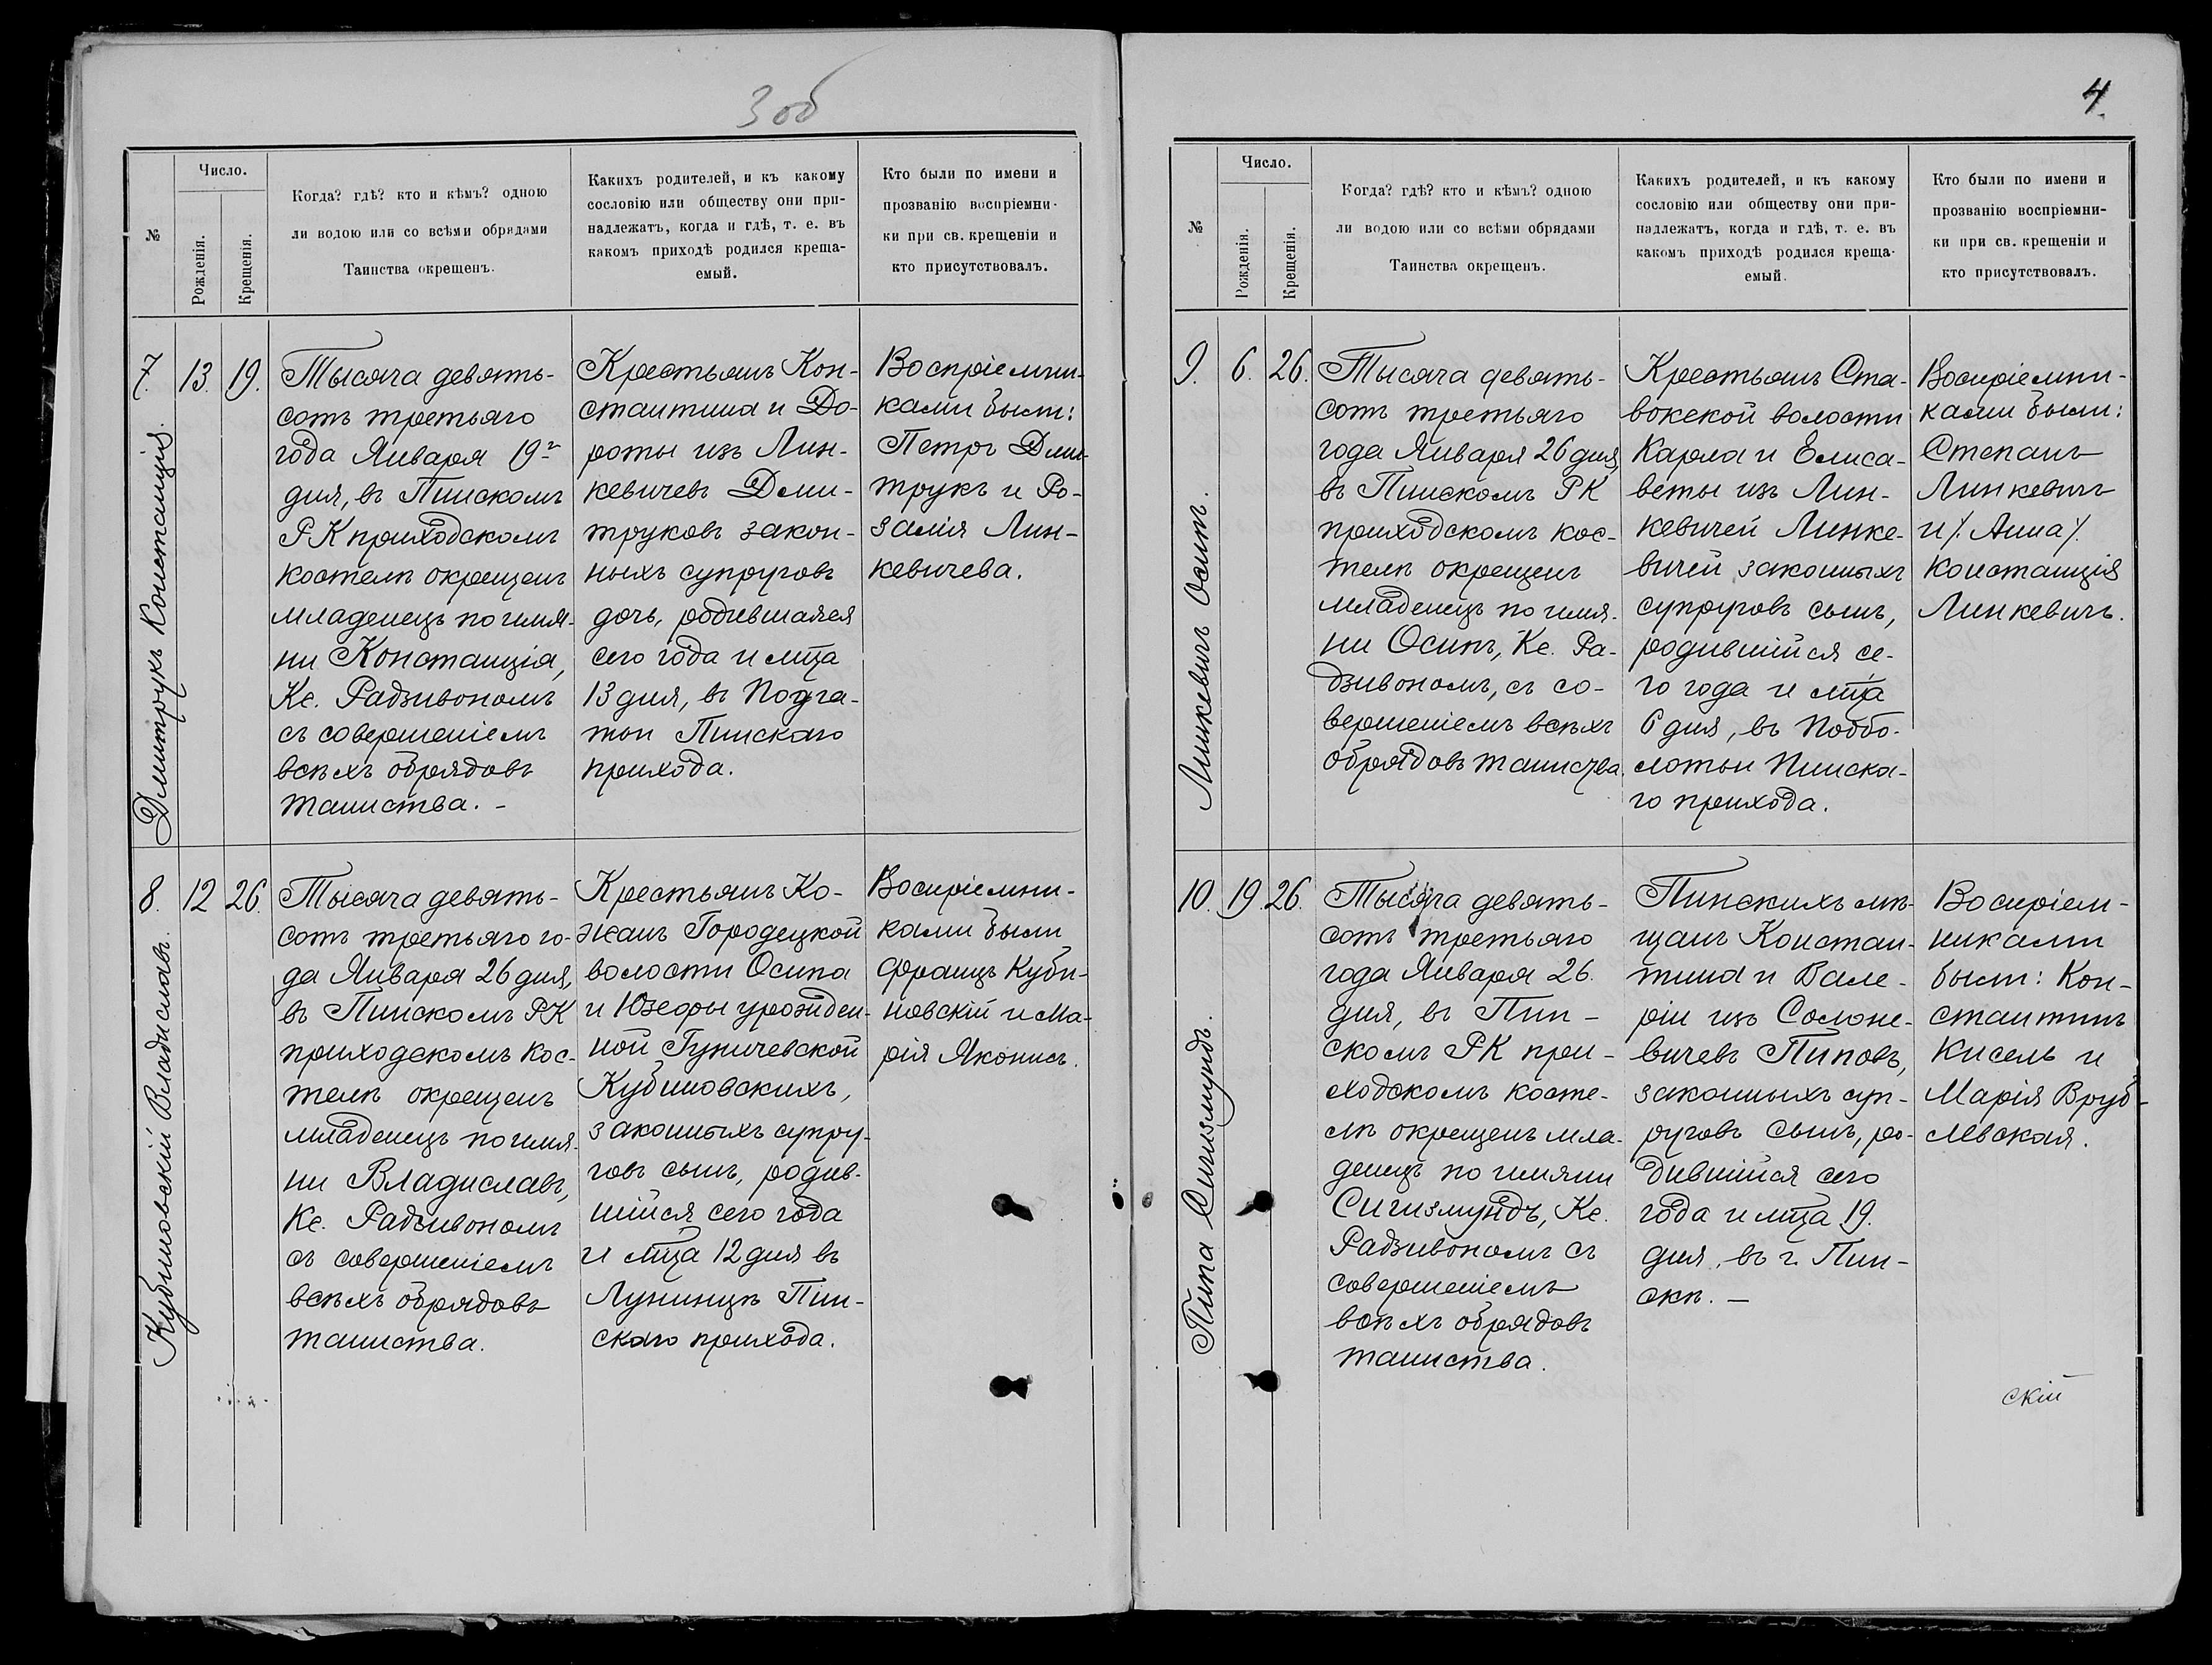 3 об
№
Число.
Рожденія.
Крещенія.
Когда? гдѣ? кто и кѣмъ? одною
ли водою или со всѣми обрядами
Таинства окрещенъ.
Какихъ родителей, и къ какому
сословію или обществу они при-
надлежатъ, когда и гдѣ, т. е. въ
какомъ приходѣ родился креща-
емый.
Кто были по имени и
прозванію воспріемни-
ки при св. крещеніи и
кто присутствовалъ.
7.
Дмитрукъ Констанція.
13.
19.
Тысяча девять-
сотъ третьяго
года Января 19го
дня, въ Пинскомъ
РК приходскомъ
костелѣ окрещенъ
младенецъ по имя-
ни Констанція,
Кс. Радзивономъ
съ совершеніемъ
всѣхъ обрядовъ
таинства. -
Крестьянъ Кон-
стантина и До-
роты изъ Лин-
кевичевъ Дми-
труковъ закон-
ныхъ супруговъ
дочь, родившаяся
сего года и мца
13 дня, въ Подга-
тьи Пинскаго
прихода.
Воспріемни-
ками были:
Петръ Дми-
трукъ и Ро-
залія Лин-
кевичева.
8.
Кубиновскій Владиславъ.
12
26.
Тысяча девять-
сотъ третьяго го-
да Января 26 дня,
въ Пинскомъ РК
приходскомъ кос-
телѣ окрещенъ
младенецъ по имя-
ни Владиславъ,
Кс. Радзивономъ
съ совершеніемъ
всѣхъ обрядовъ
таинства.
Крестьянъ Ко-
жанъ Городецкой
волости Осипа
и Юзефы урожден-
ной Гуничевской
Кубиновскихъ,
законныхъ супру-
говъ сынъ, родив-
шійся сего года
и мца 12 дня въ
Лунинцѣ Пин-
скаго прихода.
Воспріемни-
ками были
Францъ Куби-
новскій и Ма-
рія Яконись.
4.
№
Число.
Рожденія.
Крещенія.
Когда? гдѣ? кто и кѣмъ? одною
ли водою или со всѣми обрядами
Таинства окрещенъ.
Какихъ родителей, и къ какому
сословію или обществу они при-
надлежатъ, когда и гдѣ, т. е. въ
какомъ приходѣ родился креща-
емый.
Кто были по имени и
прозванію воспріемни-
ки при св. крещеніи и
кто присутствовалъ.
9.
Линкевичъ Осипъ.
6.
26.
Тысяча девять-
сотъ третьяго
года Января 26 дня,
въ Пинскомъ РК
приходскомъ кос-
телѣ окрещенъ
младенецъ по имя-
ни Осипъ, Кс. Ра-
дзивономъ, съ со-
вершеніемъ всѣхъ
обрядовъ таинства.
Крестьянъ Ста-
вокской волости
Карла и Елиса-
веты изъ Лин-
кевичей Линке-
вичей законныхъ
супруговъ сынъ,
родившійся се-
го года и мца
6 дня, въ Поддо-
лотьи Пинска-
го прихода.
Воспріемни-
ками были:
Степанъ
Линкевичъ
и /. Анна /.
Констанція
Линкевичъ.
10.
Пипа Сигизмундъ.
19.
26.
Тысяча девять-
сотъ третьяго
года Января 26.
дня, въ Пин-
скомъ РК при-
ходскомъ косте-
лѣ окрещенъ мла-
денецъ по имяни
Сигизмундъ, Кс.
Радзивономъ съ
совершеніемъ
всѣхъ обрядовъ
таинства.
Пинскихъ мѣ-
щанъ Констан-
тина и Вале-
ріи изъ Солоне-
вичевъ Пиповъ,
законныхъ суп-
руговъ сынъ, ро-
дившійся сего
года и мца 19.
дня, въ г. Пин-
скѣ. -
Воспріем-
никами
были: Кон-
стантинъ
Кисель и
Марія Вруб-
левская.
скій